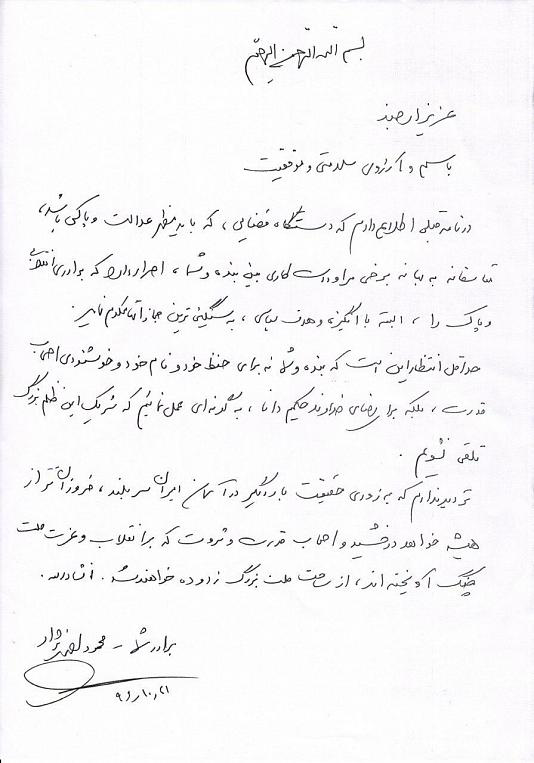 بسم الله الرحمن الرحیم
عزیز ارجمند
با سلام و آرزوی سلامتی و موفقیت
در نامه قبلی اطلاع دادم که دستگاه قضایی، که باید مظهر عدالت و پاکی باشد،
متاسفانه به بهانه برخی مراودات کاری بین بنده و شما، اصرار دارد که برادری انقلابی
و پاک را، البته با انگیزه و هدف سیاسی، به سنگین ترین مجازاتها محکوم نماید.
حداقل انتظار این است که بنده و شما نه برای حفظ خود و نام خود و خوشنودی اصحاب
قدرت، بلکه برای رضای خداوند حکیم دانا، به گونه ای عمل نمائیم که شریک این ظلم بزرگ
تلقی نشویم.
تردید ندارم که به زودی حقیقت بار دیگر در آسمان ایران سربلند، فروزان تر از
همیشه خواهد درخشید و اصحاب قدرت و ثروت که بر انقلاب و عزت ملت
چنگ آویخته اند، از ساحت ملت بزرگ زدوده خواهند شد. انشاءالله.
برادر شما - محمود احمدی نژاد
۹۶،۱۰،۲۱